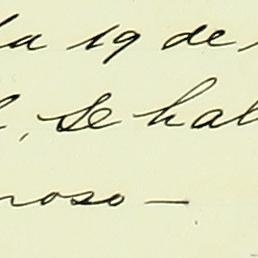 la 19 de
, se hal
roso —